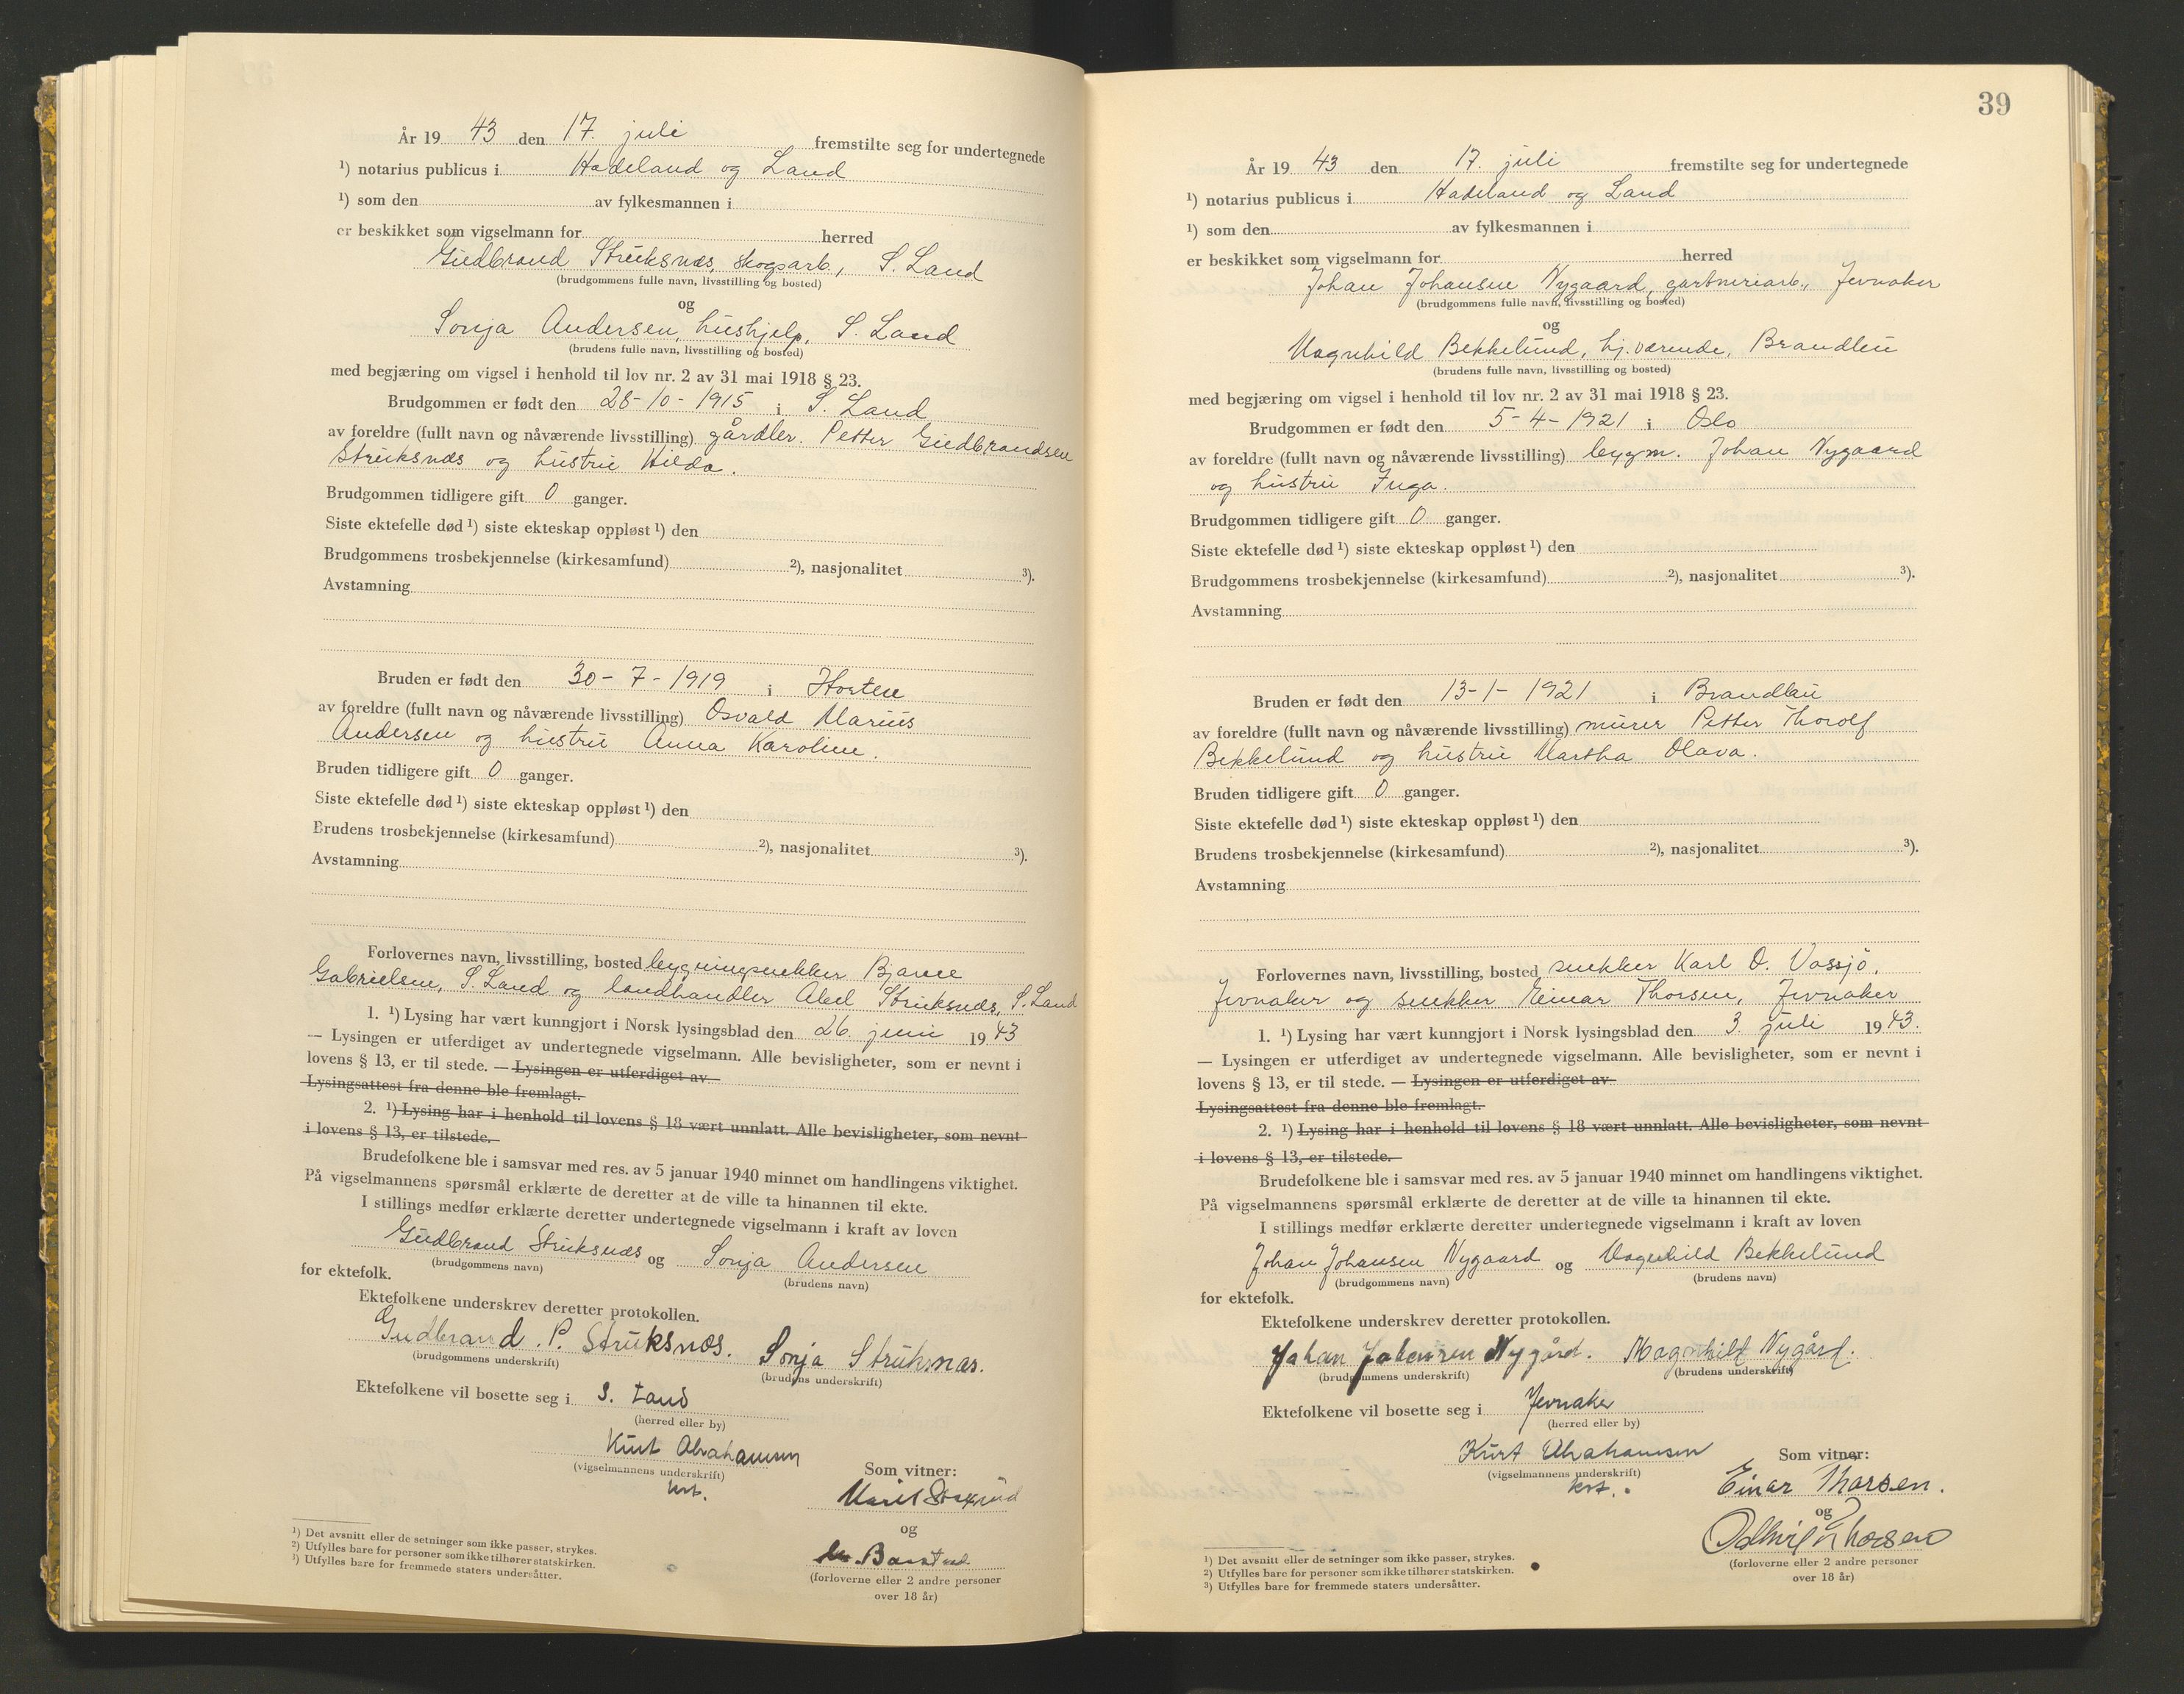 År 19 43 den 17. juli fremstilte seg for undertegnede
¹) notarius publicus i Hadeland og Land
¹) som den av fylkesmannen i
er beskikket som vigselmann for herred
Gudbrand Struksnæs, skogsarb., S. Land
(brudgommens fulle navn, livsstilling og bosted)
og
Sonja Andersen, hushjelp, S. Land
(brudens fulle navn, livsstilling og bosted)
med begjæring om vigsel i henhold til lov nr. 2 av 31 mai 1918 § 23.
Brudgommen er født den 28-10-1915 i S. Land
av foreldre (fullt navn og nåværende livsstilling) gårdbr. Petter Gudbrandsen
Struksnæs og hustru Hilda.
Brudgommen tidligere gift 0 ganger.
Siste ektefelle død ¹) siste ekteskap oppløst ¹) den
Brudgommens trosbekjennelse (kirkesamfund) ²), nasjonalitet ³).
Avstamning
Bruden er født den 30-7-1919 i Horten
av foreldre (fullt navn og nåværende livsstilling) Osvald Marius
Andersen og hustru Anna Karoline.
Bruden tidligere gift 0 ganger.
Siste ektefelle død ¹) siste ekteskap oppløst ¹) den
Brudens trosbekjennelse (kirkesamfund) ²), nasjonalitet ³).
Avstamning
Forlovernes navn, livsstilling, bosted bygningsnekker Bjarne
Gabrielsen, S. Land og landhandler Abel Struksnæs, S. Land
1. ¹) Lysing har vært kunngjort i Norsk lysingsblad den 26. juni 1943
— Lysingen er utferdiget av undertegnede vigselmann. Alle bevisligheter, som er nevnt i
lovens § 13, er til stede. — Lysingen er utferdiget av
Lysingsattest fra denne ble fremlagt.
2. ¹) Lysing har i henhold til lovens § 18 vært unnlatt. Alle bevisligheter, som nevnt
i lovens § 13, er tilstede.
Brudefolkene ble i samsvar med res. av 5 januar 1940 minnet om handlingens viktighet.
På vigselmannens spørsmål erklærte de deretter at de ville ta hinannen til ekte.
I stillings medfør erklærte deretter undertegnede vigselmann i kraft av loven
Gudbrand Struksnæs og Sonja Andersen
(brudgommens navn) (brudens navn)
for ektefolk.
Ektefolkene underskrev deretter protokollen.
Gudbrand. P. Struksnæs. Sonja Struksnæs.
(brudgommens underskrift) (brudens underskrift)
Ektefolkene vil bosette seg i S. Land
(herred eller by)
Kurt Abrahamsen
(vigselmannens underskrift)
Som vitner:
og
(forloverne eller 2 andre personer
over 18 år)
¹) Det avsnitt eller de setninger som ikke passer, strykes.
²) Utfylles bare for personer som ikke tilhører statskirken.
³) Utfylles bare for fremmede staters undersåtter.
39
År 19 43 den 17. juli fremstilte seg for undertegnede
¹) notarius publicus i Hadeland og Land
¹) som den av fylkesmannen i
er beskikket som vigselmann for herred
Johan Johansen Nygaard, gartneriarb., Jevnaker
(brudgommens fulle navn, livsstilling og bosted)
og
Magnhild Bekkelund, hj.værende, Brandbu
(brudens fulle navn, livsstilling og bosted)
med begjæring om vigsel i henhold til lov nr. 2 av 31 mai 1918 § 23.
Brudgommen er født den 5-4-1921 i Oslo
av foreldre (fullt navn og nåværende livsstilling) bygm. Johan Nygaard
og hustru Inga.
Brudgommen tidligere gift 0 ganger.
Siste ektefelle død ¹) siste ekteskap oppløst ¹) den
Brudgommens trosbekjennelse (kirkesamfund) ²), nasjonalitet ³).
Avstamning
Bruden er født den 13-1-1921 i Brandbu
av foreldre (fullt navn og nåværende livsstilling) murer Petter Thorolf
Bekkelund og hustru Martha Olava.
Bruden tidligere gift 0 ganger.
Siste ektefelle død ¹) siste ekteskap oppløst ¹) den
Brudens trosbekjennelse (kirkesamfund) ²), nasjonalitet ³).
Avstamning
Forlovernes navn, livsstilling, bosted snekker Karl O. Vassjø,
Jevnaker og snekker Einar Thorsen, Jevnaker
1. ¹) Lysing har vært kunngjort i Norsk lysingsblad den 3. juli 1943.
— Lysingen er utferdiget av undertegnede vigselmann. Alle bevisligheter, som er nevnt i
lovens § 13, er til stede. — Lysingen er utferdiget av
Lysingsattest fra denne ble fremlagt.
2. ¹) Lysing har i henhold til lovens § 18 vært unnlatt. Alle bevisligheter, som nevnt
i lovens § 13, er tilstede.
Brudefolkene ble i samsvar med res. av 5 januar 1940 minnet om handlingens viktighet.
På vigselmannens spørsmål erklærte de deretter at de ville ta hinannen til ekte.
I stillings medfør erklærte deretter undertegnede vigselmann i kraft av loven
Johan Johansen Nygaard og Magnhild Bekkelund
(brudgommens navn) (brudens navn)
for ektefolk.
Ektefolkene underskrev deretter protokollen.
Johan Johansen Nygård. Magnhild Nygård.
(brudgommens underskrift) (brudens underskrift)
Ektefolkene vil bosette seg i Jevnaker
(herred eller by)
Kurt Abrahamsen
(vigselmannens underskrift)
Som vitner:
Einar Thorsen.
og
Thorsen
(forloverne eller 2 andre personer
over 18 år)
¹) Det avsnitt eller de setninger som ikke passer, strykes.
²) Utfylles bare for personer som ikke tilhører statskirken.
³) Utfylles bare for fremmede staters undersåtter.